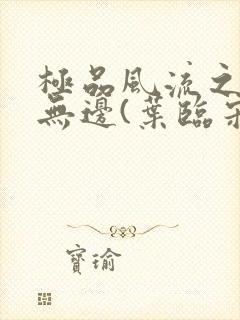 極品風流之
無邊(葉臨
寶瑜